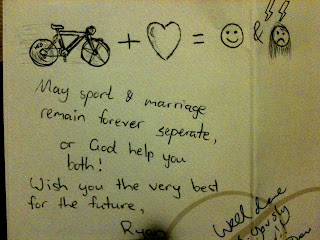 + = &
May sport & marriage
remain forever seperate,
or God help you
both!
Wish you the very best
for the future,
Ryan
Well done